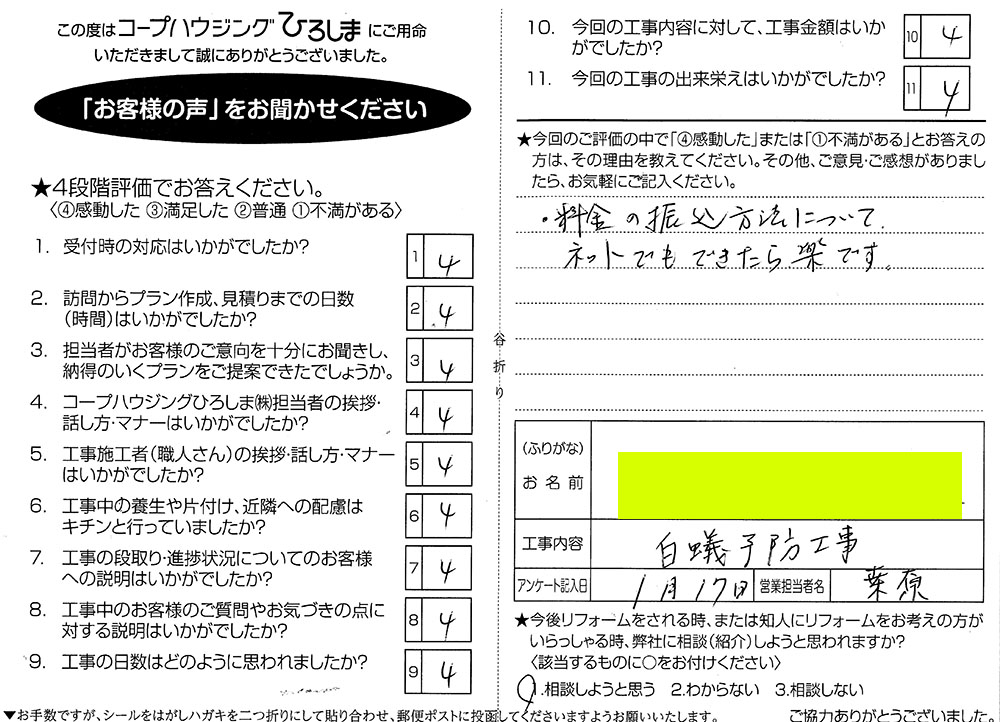 この度はコープハウジングひろしまにご用命
いただきまして誠にありがとうございました。
「お客様の声」をお聞かせください
★4段階評価でお答えください。
〈④感動した ③満足した ②普通 ①不満がある〉
1. 受付時の対応はいかがでしたか?
1 4
2. 訪問からプラン作成、見積りまでの日数
(時間)はいかがでしたか?
2 4
3. 担当者がお客様のご意向を十分にお聞きし、
納得のいくプランをご提案できたでしょうか。
3 4
4. コープハウジングひろしま㈱担当者の挨拶・
話し方・マナーはいかがでしたか?
4 4
5. 工事施工者(職人さん)の挨拶・話し方・マナー
はいかがでしたか?
5 4
6. 工事中の養生や片付け、近隣への配慮は
キチンと行っていましたか?
6 4
7. 工事の段取り・進捗状況についてのお客様
への説明はいかがでしたか?
7 4
8. 工事中のお客様のご質問やお気づきの点に
対する説明はいかがでしたか?
8 4
9. 工事の日数はどのように思われましたか?
9 4
谷折り
10. 今回の工事内容に対して、工事金額はいか
がでしたか?
10 4
11. 今回の工事の出来栄えはいかがでしたか?
11 4
★今回のご評価の中で「④感動した」または「①不満がある」とお答えの
方は、その理由を教えてください。その他、ご意見・ご感想がありまし
たら、お気軽にご記入ください。
・料金の振込方法について
ネットでもできたら楽です。
(ふりがな)
お名前
工事内容 白蟻予防工事
アンケート記入日 1月17日 営業担当者名 栗原
★今後リフォームをされる時、または知人にリフォームをお考えの方が
いらっしゃる時、弊社に相談(紹介)しようと思われますか?
〈該当するものに○をお付けください〉
1.相談しようと思う 2.わからない 3.相談しない
▼お手数ですが、シールをはがしハガキを二つ折りにして貼り合わせ、郵便ポストに投函してくださいますようお願いいたします。 ご協力ありがとうございました。